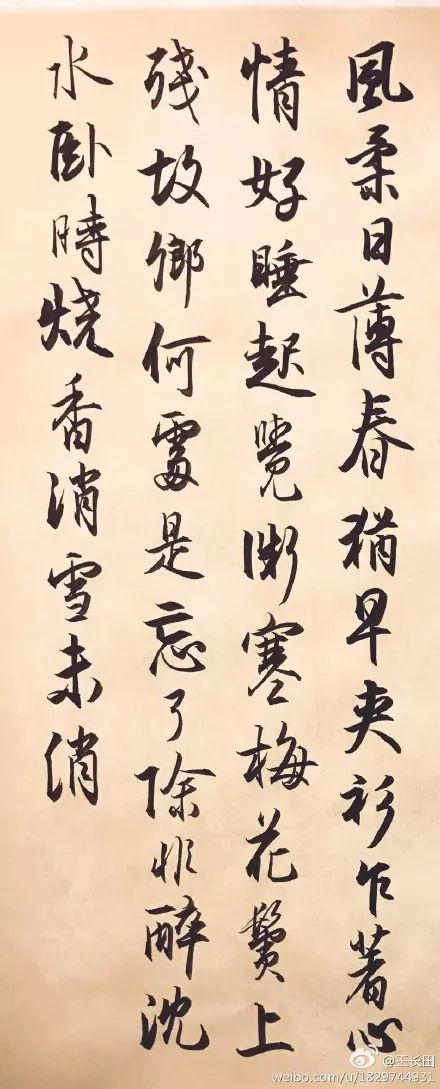 風柔日薄春猶早夹衫乍著心
情好睡起覺微寒梅花鬢上
殘故鄉何處是忘了除非醉沈
水卧時燒香消雪未消
@王长田
weibo.com/u/1829744931